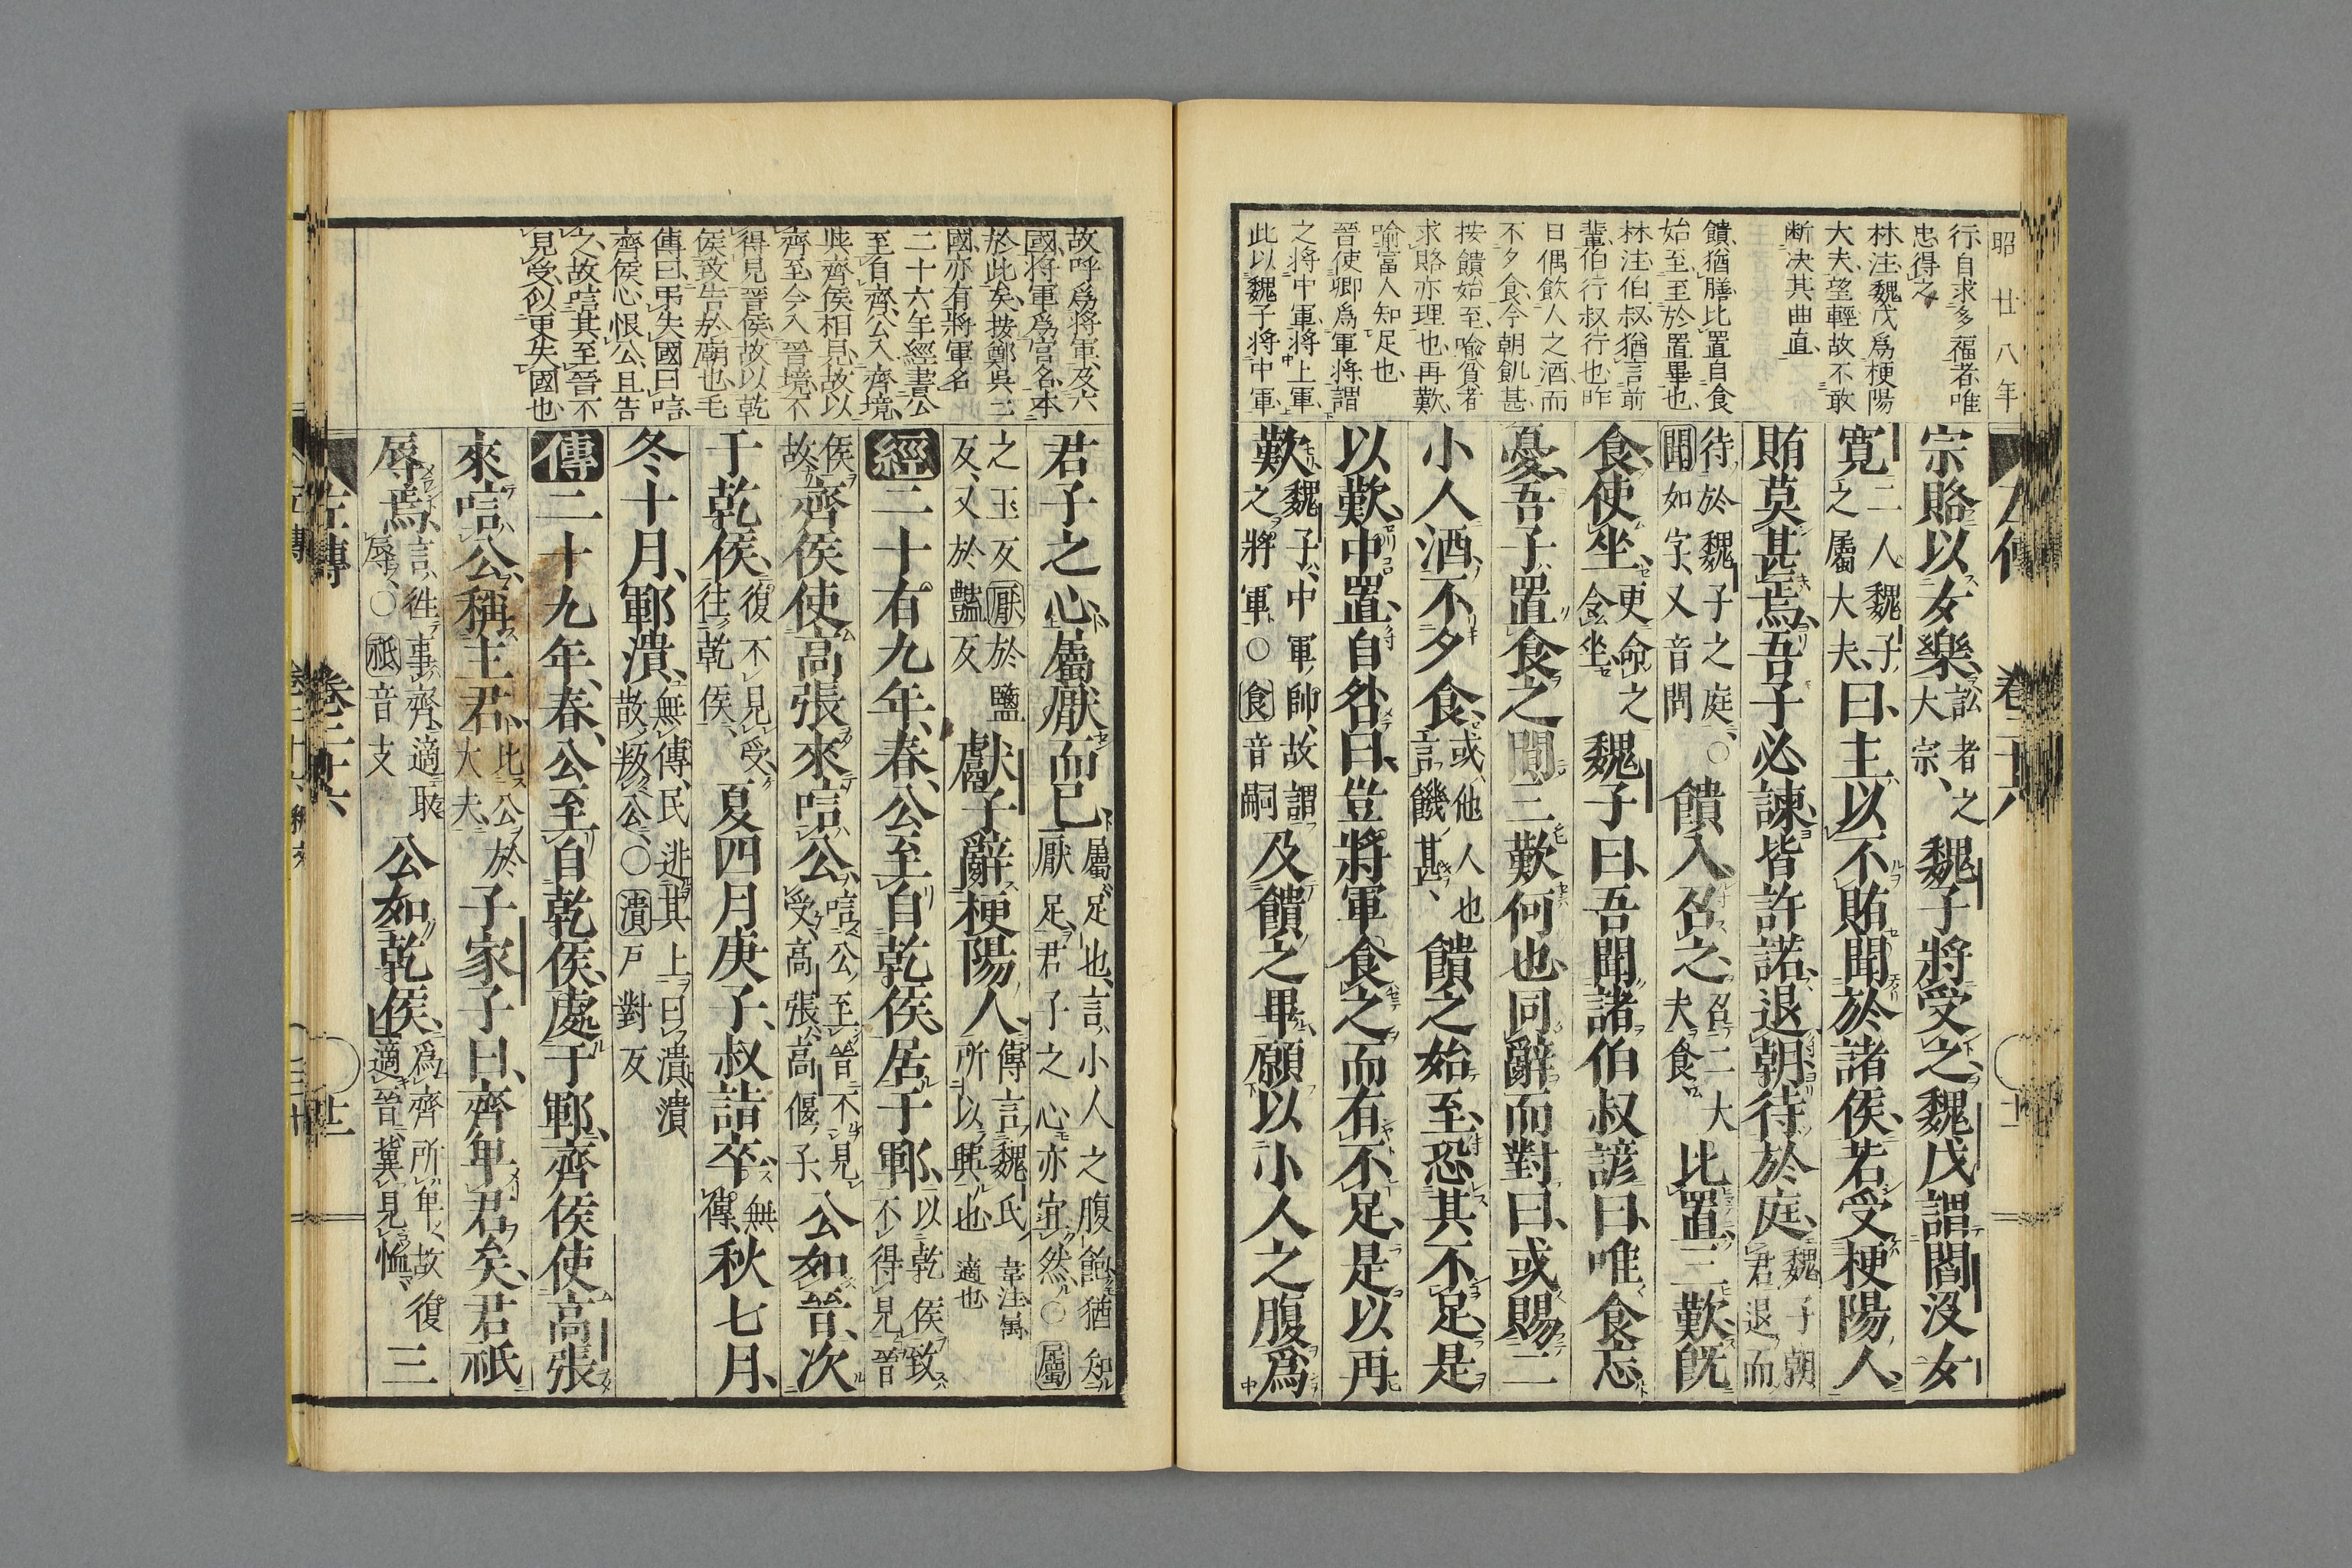 昭廿八年
行自求多福者唯
忠得之
林注魏戊爲梗陽
大夫望輕故不敢
斷決其曲直
饋猶膳比置自食
始至至於置畢也
林注伯叔猶言前
輩伯行叔行也昨
日偶飲人之酒而
不夕食今朝飢甚
按饋始至喻貧者
求賂亦理也再歎
喻富人知足也
晉使卿爲軍將謂
之將中軍將上軍
此以魏子將中軍
宗賂以女樂、訟者之大宗、魏子將受之、魏戊謂閻沒女
寬二人魏子之屬大夫、曰、主以不賄聞於諸侯、若受梗陽人、
賄莫甚焉、吾子必諫、皆許諾、退朝、待於庭、魏子朝君退而
待於魏子之庭、〇聞如字、又音問饋入、召之、召二大夫食比置三歎、旣
食、使坐、更命之令坐魏子曰、吾聞諸伯叔諺曰、唯食忘
憂、吾子置食之間三歎何也、同辭而對曰、或賜二
小人酒、不夕食、或他人也言饑甚、饋之始至、恐其不足、是
以歎、中置、自咎曰、豈將軍食之而有不足、是以再
歎、魏子、中軍帥、故謂之將軍〇食音嗣及饋之畢、願以小人之腹爲
故呼爲將軍及六
國將軍爲官名本
於此矣按鄭吳二
國亦有將軍名
二十六年經書公
至有齊公入齊境
與齊侯相見故以
齊至今入晉境不
得見晉侯故以乾
侯致告於廟也毛
傳曰弔失國曰唁
齊侯心恨公且告
之故唁其至晉不
見受似更失國也
君子之心、屬厭而已、屬足也、言小人之腹飽猶知厭足君子之心亦宜然〇屬
之玉反厭於鹽反、又於豔反獻子辭梗陽人、傳言魏氏所以興也
韋注屬
適也
經二十有九年、春、公至自乾侯、居于鄆、以乾侯致不得見晉
侯故齊侯使高張來唁公、唁公至晉不見受、高張高偃子、公如晉、次
于乾侯、復不見受、往乾侯、夏四月庚子、叔詣卒、無傳秋七月、
冬十月、鄆潰、無傳、民逃其上曰潰、潰散叛公、〇潰戶對反
傳二十九年、春、公至自乾侯、處于鄆、齊侯使高張
來唁公、稱主君、比公於大夫、子家子曰、齊卑君矣、君祇
辱焉、言往事齊、適取辱、〇祇音支公如乾侯、爲齊所卑、故復適晉冀見恤三
左傳 卷二十六